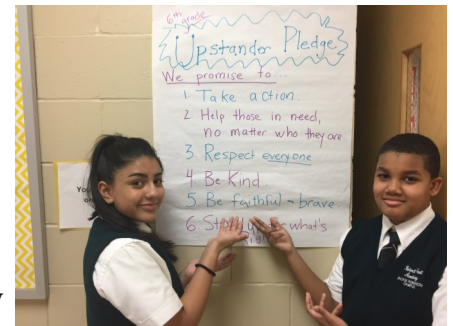 6th grade
Upstander Pledge
We promise to...
1. Take action.
2 Help those in need,
no matter who they are
3. Respect everyone
4. Be Kind
5. Be faithful - brave
6. what's
Academy
y